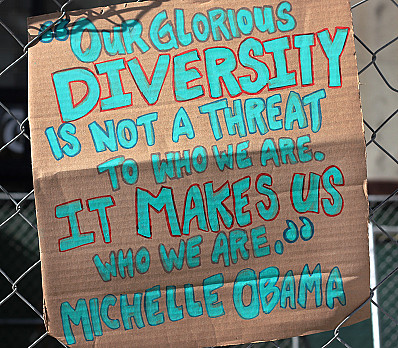 “Our Glorious
DIVERSITY
IS NOT A THREAT
TO WHO WE ARE.
IT MAKES US
WHO WE ARE.”
MICHELLE OBAMA